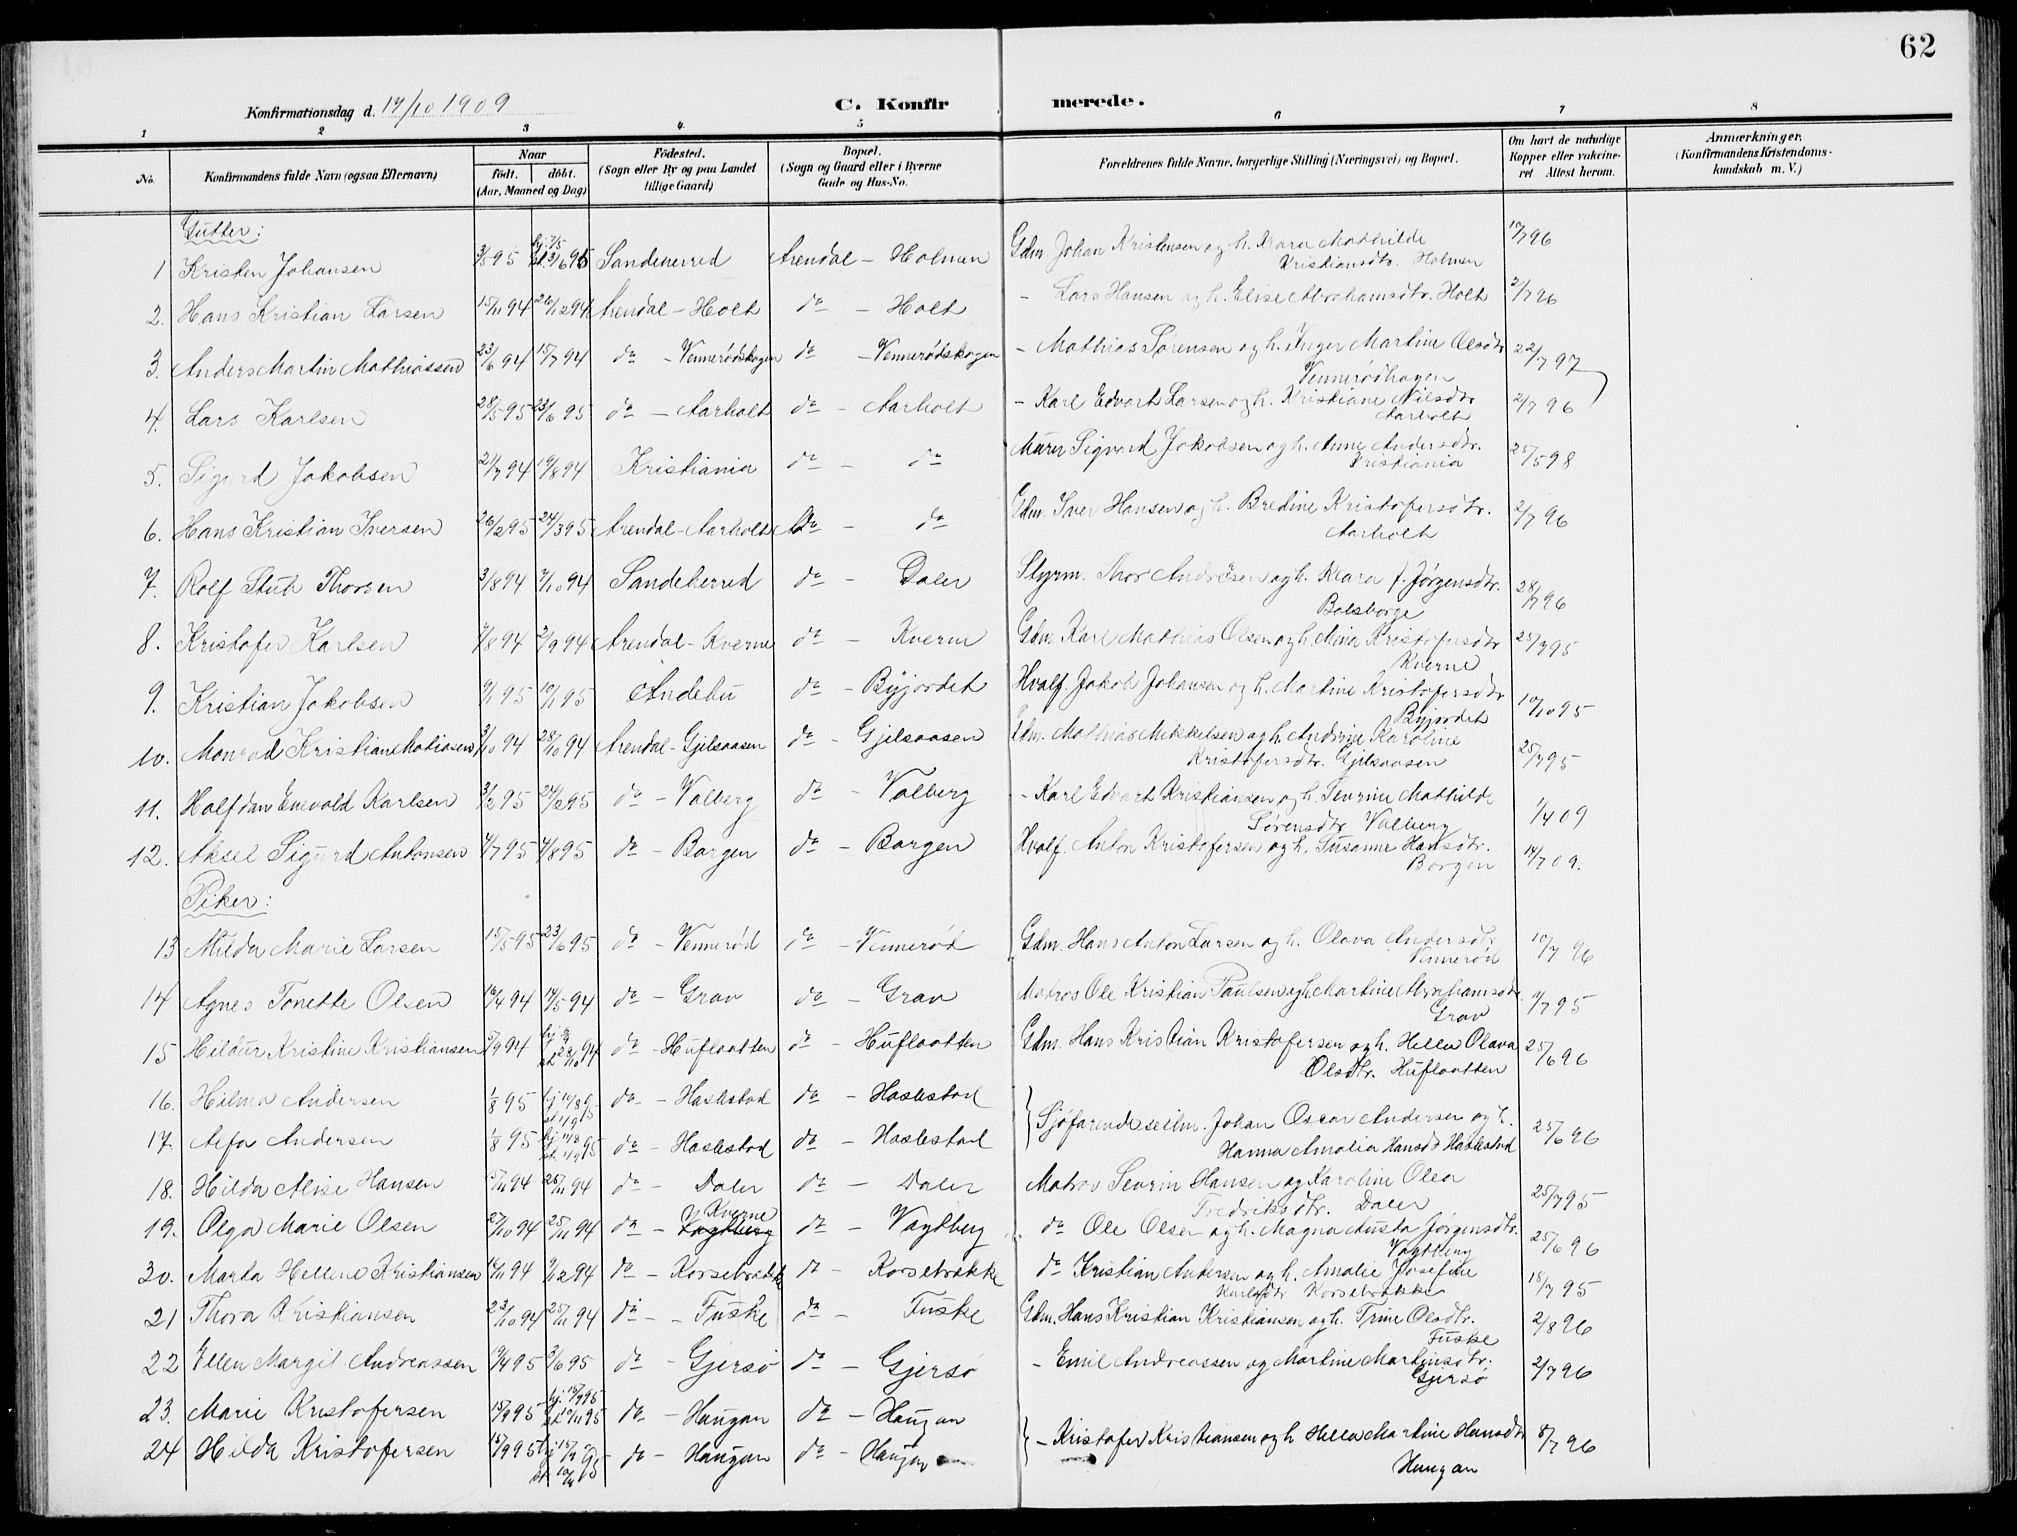 62
Konfirmationsdag d. 17/10 1909 C. Konfirmerede.
1 2 3 4 5 6 7 8
No. Konfirmandens fulde Navn (ogsaa Efternavn) Naar født. døbt. (Aar, Maaned og Dag) Fødested. (Sogn eller By og paa Landet tillige Gaard) Bopæl. (Sogn og Gaard eller i Byerne Gade og Hus-No. Forældrenes fulde Navne, borgerlige Stilling (Næringsvei) og Bopæl. Om havt de naturlige Kopper eller vakcineret. Attest herom. Anmærkninger. (Konfirmandens Kristendomskundskab m. V.)
Gutter:
1 Kristen Johansen 3/5 95 hj. 7/5 st. 3/6 95 Sandeherred Arendal - Holmen Gdm. Johan Kristensen og h. Klara Mathilde Kristiansdtr. Holmen 10/7 96
2. Hans Kristian Larsen 15/11 94 26/12 94 Arendal - Holt do - Holt - Lars Hansen og h. Elise Abrahamsdtr. Holt 2/7 96
3. Anders Martin Mathiassen 23/6 94 15/7 94 do - Vennerødskogen do - Vennerødskogen - Mathias Sørensen og h. Inger Martine Olsdtr Vennerødhagen 22/7 97
4. Lars Karlsen 28/5 95 23/6 95 do - Aarholt do - Aarholt - Karl Edvart Larsen og h. Kristiane Nilsdtr Aarholt 2/7 96
5. Sigurd Jakobsen 21/7 94 19/8 94 Kristiania do - do Murer Sigvard Jakobsen og h. Anne Andersdtr. Kristiania 25/5 98
6. Hans Kristian Iversen 26/2 95 24/3 95 Arendal - Aarholt do - do Gdm. Iver Hansen og h. Bredine Kristofersdtr. Aarholt 2/7 96
7. Rolf Stub Thorsen 3/8 94 7/10 94 Sandeherred do - Daler Styrm. Thor Andrésen og h. Klara f. Jørgensdtr. Bolsborge 28/7 96
8. Kristofer Karlsen 7/8 94 2/9 94 Arendal - Kverne do - Kverne Gdm. Karl Mathias Olsen og h. Mine Kristofersdtr Kverne 25/7 95
9. Kristian Jakobsen 9/1 95 10/1 95 Andebu do - Byjordet Hvalf. Jakob Johansen og h. Martine Kristofersdtr Byjordet 10/10 95
10. Monrad Kristian Matiasen 3/10 94 28/10 94 Arendal - Gjelsaasen do - Gjelsaasen Gdm. Mathias Mikkelsen og h. Andrine Karoline Kristofersdtr. Gjelsaasen 25/7 95
11. Halfdan Enevold Karlsen 3/2 95 24/2 95 do - Valberg do - Valberg - Karl Edvart Kristiansen og h. Severine Mathilde Sørensdtr Valberg 1/4 09
12. Aksel Sigurd Antonsen 4/7 95 4/8 95 do - Borgen do - Borgen Hvalf. Anton Kristofersen og h. Susanne Hansdtr. Borgen 14/7 09.
Piker:
13 Milda Marie Larsen 15/5 95 23/6 95 do - Vennerød do - Vennerød Gdm. Hans Anton Larsen og h. Olava Andersdtr Vennerød 10/7 96
14 Agnes Tonette Olsen 16/4 94 14/5 94 do - Grav do - Grav Matros Ole Kristian Paulsen og h. Martine Abrahamsdtr. Grav 11/7 95
15 Hildur Kristine Kristiansen 5/9 94 hj. st. 28/10 94 do - Huflaatten do - Huflaatten Gdm. Hans Kristian Kristofersen og h. Hella Olava Olsdtr. Huflaatten 25/6 96
16. Hilma Andersen 1/8 95 hj 10/8 st. 1/9 95 do - Haslestad do - Haslestad Sjøfarende seilm. Johan Oscar Andersen og h. Hanna Amalia Hansdtr Haslestad 25/6 96
17. Alfa Andersen 1/8 95 hj. 10/8 st. 1/9 95 do - Haslestad do - Haslestad
18. Hilda Alise Hansen 94 25/11 94 do - Daler do - Daler Matros Severin Hansen og Karoline Olea Fredriksdtr. Daler 25/7 95
19. Olga Marie Olsen 27/10 94 25/11 94 do - Kverne Vagtberg do - Vagtberg do Ole Olsen og h. Magna Austa Jørgensdtr. Vagtberg 25/6 96
30. Marta Hellene Kristiansen 16/11 94 9/12 94 do - Korsebrække do - Korsebrække do Kristian Andersen og h. Amalie Josefine Karlsdtr Korsebrække 18/7 95
21 Thora Kristiansen 23/10 94 25/11 94 do - Fuske do - Fuske Gdm. Hans Kristian Kristiansen og h. Trine Olsdtr. Fuske 2/8 96
22 Ellen Margit Andreassen 19/4 95 3/6 95 do - Gjersø do - Gjersø - Emil Andreassen og Martine Martinsdtr. Gjersø 2/7 96
23. Marie Kristofersen 15/9 95 hj. 15/9 95 st. 10/11 95 do - Haugan do - Haugan - Kristofer Kristiansen og h. Hella Martine Hansdtr Haugan 8/7 96
24 Hilda Kristofersen 15/9 95 hj 15/9 st. 10/11 95 do - Haugan do - Haugan